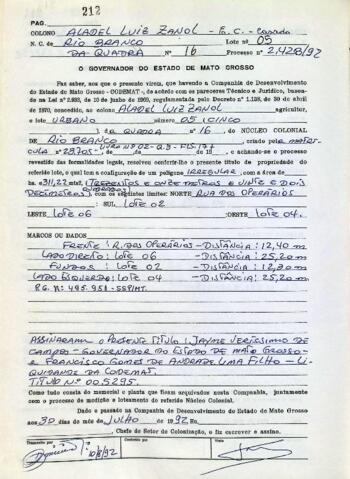 212
PAG.
COLONO ALADEL LUIZ ZANOL - E.C. - Casado
N. C. de RIO BRANCO Lote nº 05
DA QUADRA Nº 16 PROCESSO Nº 2.428/92
O GOVERNADOR DO ESTADO DE MATO GROSSO
Faz saber, aos que o presente virem, que havendo a Companhia de Desenvolvimento
do Estado de Mato Grosso - CODEMAT -, de acordo com os pareceres Técnico e Jurídico, basea-
do na Lei nº 2.993, de 10 de junho de 1969, regulamentada pelo Decreto nº 1.138, de 30 de abril
de 1970, concedido, ao colono ALADEL LUIZ ZANOL agricultor,
o lote URBANO número 05 (CINCO
) da QUADRA nº 16, do NÚCLEO COLONIAL
DE RIO BRANCO, criado pela MATRÍ-
CULA nº 29.705-, de LIVRO Nº 02-Q.3-FLS.177, e achando-se o processo
revestido das formalidades legais, resolveu conferir-lhe o presente título de propriedade do
referido lote, o qual tem a configuração de um polígono IRREGULAR, com a área de
ha. 311,22 mts². (TREZENTOS E ONZE METROS E VINTE E DOIS
DECÍMETROS QUADRADOS) com os seguintes limites: NORTE RUA DOS OPERÁRIOS
SUL LOTE 02
LESTE LOTE 06 OESTE LOTE 04.
MARCOS OU DADOS
FRENTE: R. DOS OPERÁRIOS - DISTÂNCIA: 12,40 m
LADO DIREITO: LOTE 06 - DISTÂNCIA: 25,20 m
FUNDOS: LOTE 02 - DISTÂNCIA:
LADO ESQUERDO: LOTE 04 - DISTÂNCIA: 25,20 m
R.G. Nº: 495.951-SSP/MT.
ASSINARAM O PRESENTE TÍTULO: JAYME VERÍSSIMO DE
CAMPOS - GOVERNADOR DO ESTADO DE MATO GROSSO -
E FRANCISCO GOMES DE ANDRADE LIMA FILHO - LI-
QUIDANTE DA CODEMAT.
TÍTULO Nº 005295.
Como tudo consta do memorial e planta que ficam arquivados nesta Companhia, juntamente
com o processo de medição e loteamento do referido Núcleo Colonial.
Dado e passado na Companhia de Desenvolvimento do Estado de Mato Grosso
aos 30 dias do mês de JULHO de 1992 Eu,
, Chefe do Setor de Colonização, o fiz escrever e assino.
Transcrito por Conferido por Visto
10/8/92